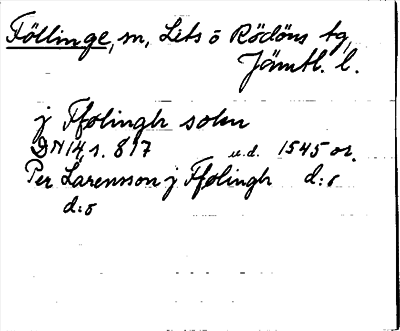 Föllinge, sn, Lits o Rödöns tg,
Jämtl. l.
j Ffolingh sokn
DN 14 s. 817 u.d. 1545 or.
Per Larensson j Ffolingh d:o
d:o